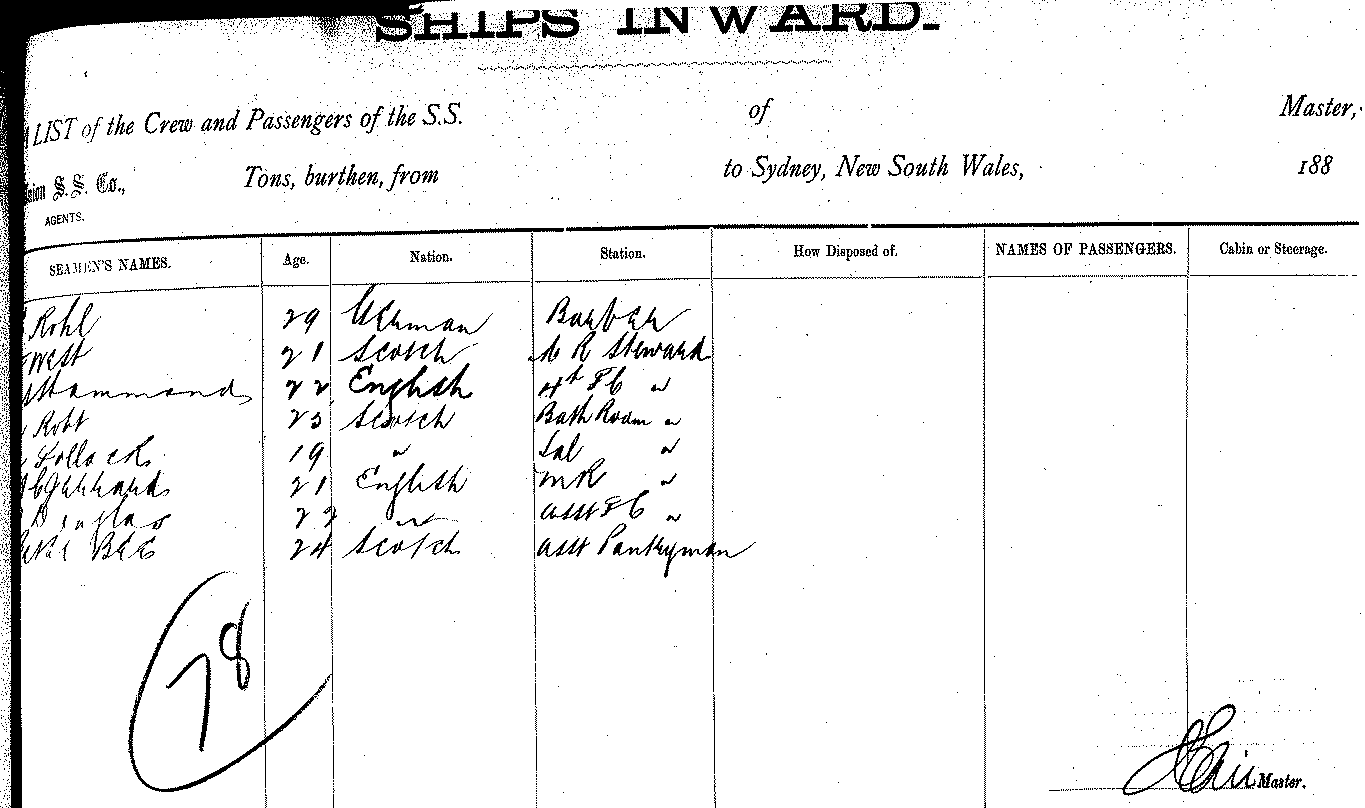 SHIPS INWARD.
LIST of the Crew and Passengers of the S.S. of Master,
S.S. Co., Tons, burthen, from to Sydney, New South Wales, 188
AGENTS.
SEAMEN'S NAMES. Age. Nation. Station. How Disposed of. NAMES OF PASSENGERS. Cabin or Steerage.
Rohl 29 German Barber
West 21 Scotch R Steward
Hammond 22 English 4th "
Robt 23 Scotch Bath Room "
19 " Sal "
21 English MR "
Douglas 22 " asst "
24 Scotch asst Pantryman
78
Master.